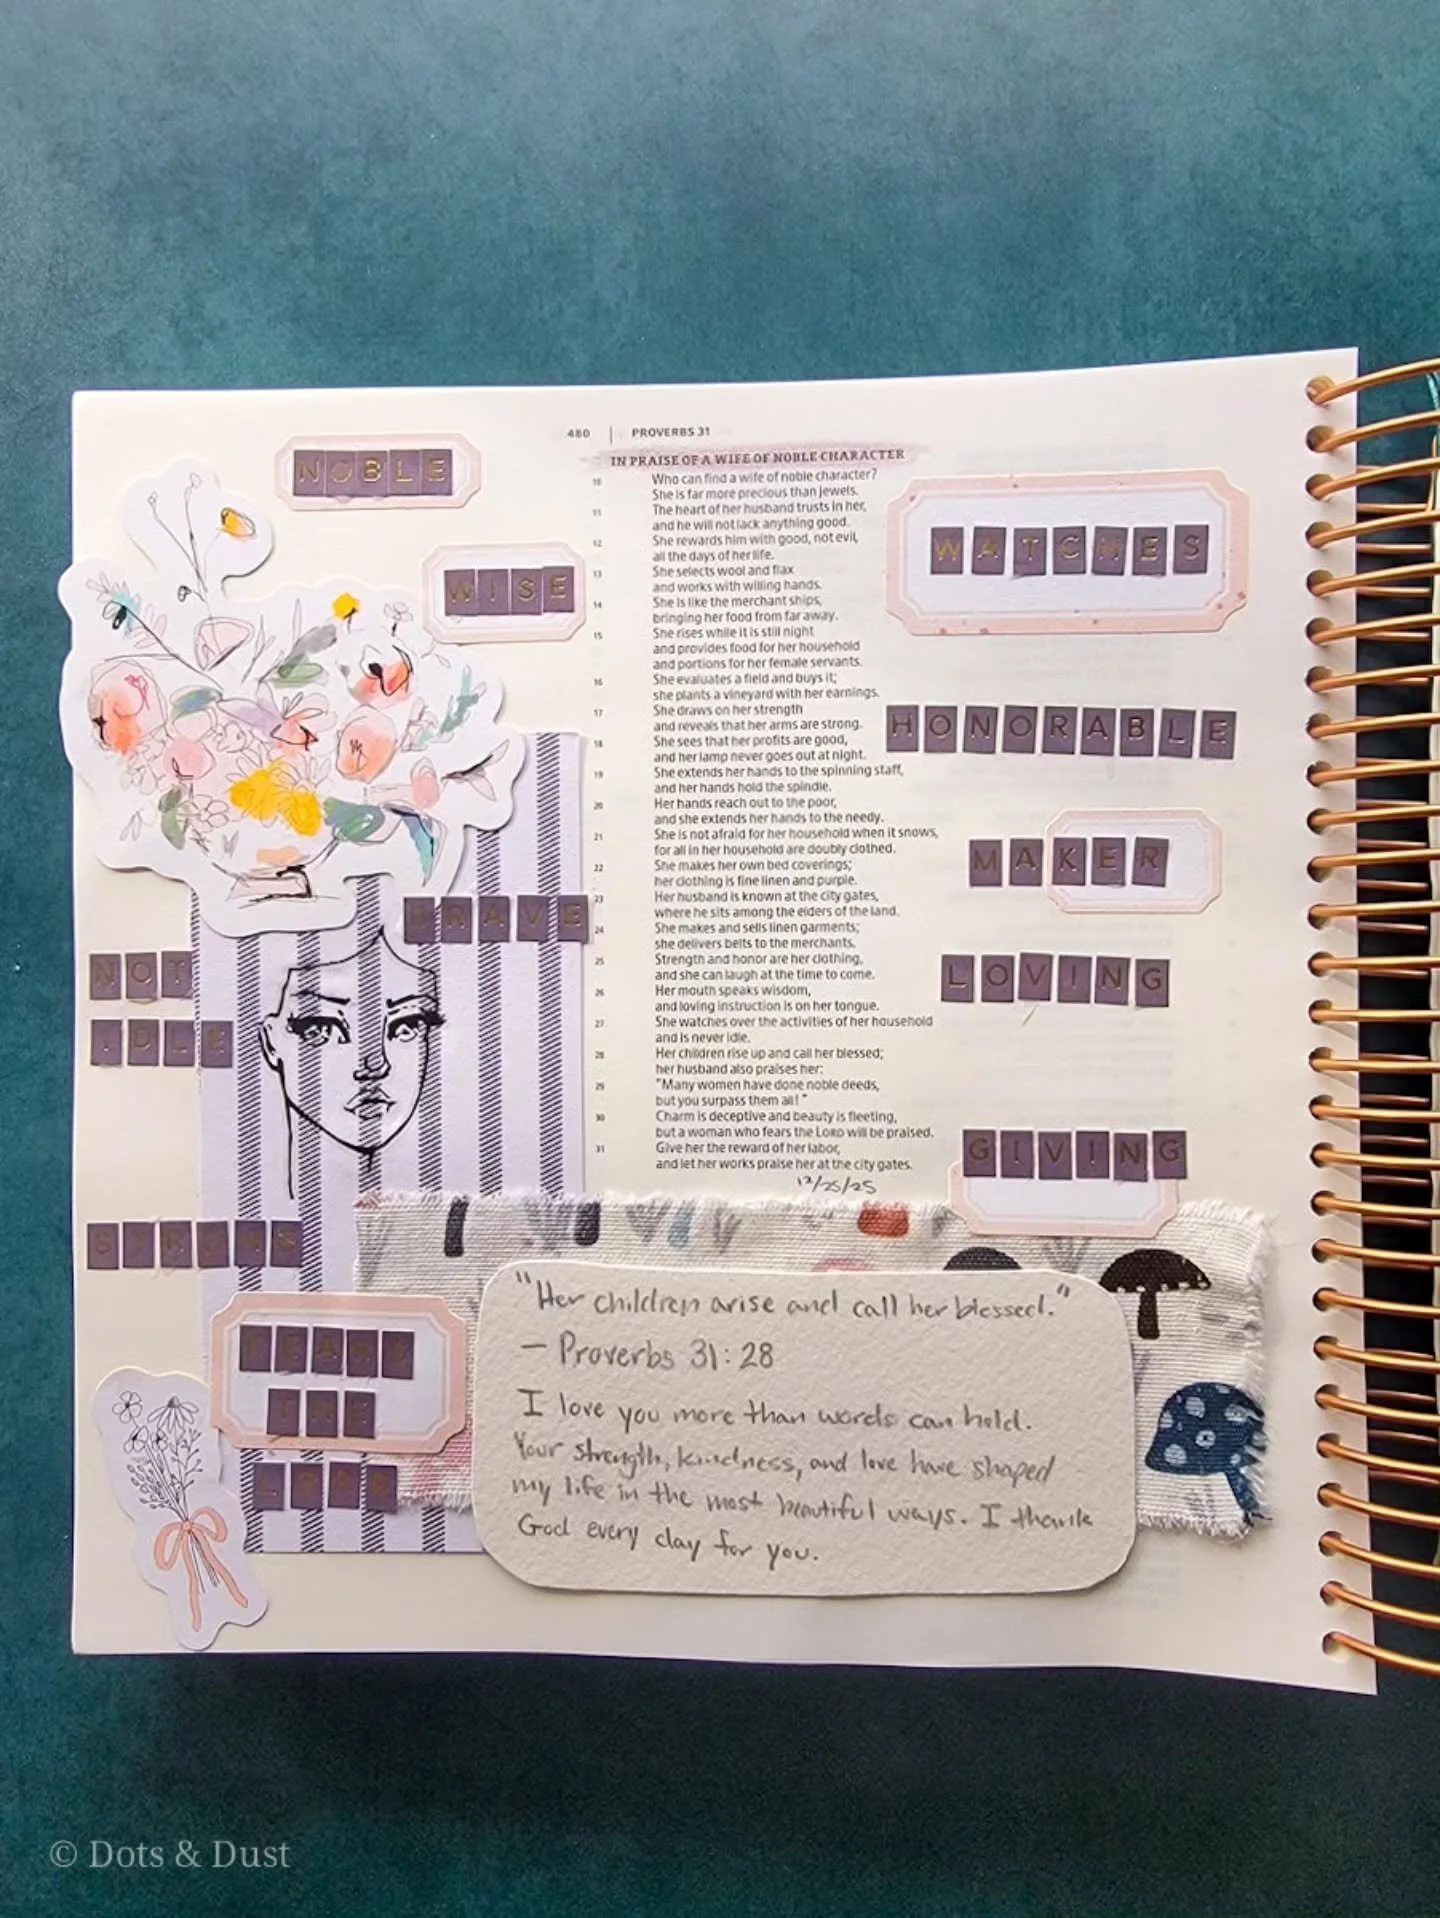 480 | PROVERBS 31
IN PRAISE OF A WIFE OF NOBLE CHARACTER
10 Who can find a wife of noble character?
She is far more precious than jewels.
11 The heart of her husband trusts in her,
and he will not lack anything good.
12 She rewards him with good, not evil,
all the days of her life.
13 She selects wool and flax
and works with willing hands.
14 She is like the merchant ships,
bringing her food from far away.
15 She rises while it is still night
and provides food for her household
and portions for her female servants.
16 She evaluates a field and buys it;
she plants a vineyard with her earnings.
17 She draws on her strength
and reveals that her arms are strong.
18 She sees that her profits are good,
and her lamp never goes out at night.
19 She extends her hands to the spinning staff,
and her hands hold the spindle.
20 Her hands reach out to the poor,
and she extends her hands to the needy.
21 She is not afraid for her household when it snows,
for all in her household are doubly clothed.
22 She makes her own bed coverings;
her clothing is fine linen and purple.
23 Her husband is known at the city gates,
where he sits among the elders of the land.
24 She makes and sells linen garments;
she delivers belts to the merchants.
25 Strength and honor are her clothing,
and she can laugh at the time to come.
26 Her mouth speaks wisdom,
and loving instruction is on her tongue.
27 She watches over the activities of her household
and is never idle.
28 Her children rise up and call her blessed;
her husband also praises her:
29 "Many women have done noble deeds,
but you surpass them all!"
30 Charm is deceptive and beauty is fleeting,
but a woman who fears the LORD will be praised.
31 Give her the reward of her labor,
and let her works praise her at the city gates.
12/25/25
NOBLE
WISE
BRAVE
NOT
IDLE
STRONG
FEARS
THE
LORD
WATCHES
HONORABLE
MAKER
LOVING
GIVING
"Her children arise and call her blessed."
— Proverbs 31:28
I love you more than words can hold.
Your strength, kindness, and love have shaped
my life in the most beautiful ways. I thank
God every day for you.
© Dots & Dust